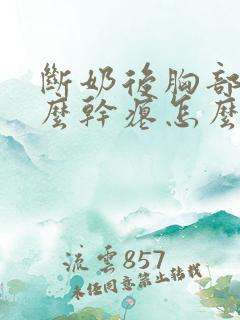 斷奶後胸部
麼幹瘪怎麼
流雲857
未經同意禁止轉載